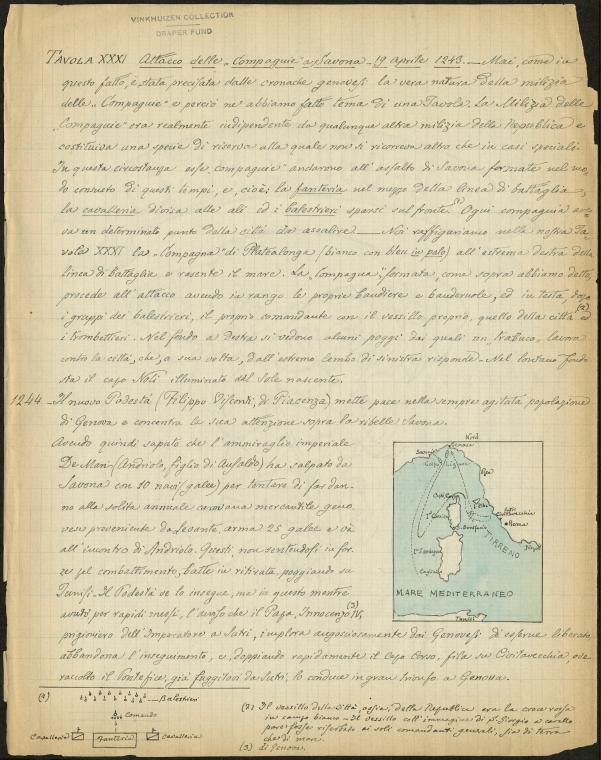 VINKHUIZEN COLLECTION
DRAPER FUND
TAVOLA XXXI Attacco delle „Compagnie" a Savona - 19 aprile 1243. — Mai, come in
questo fatto, è stata precisata dalle cronache genovesi la vera natura della milizia
delle „Compagnie" e perciò ne abbiamo fatto tema di una Tavola. La Milizia delle
„Compagnie" era realmente indipendente da qualunque altra milizia della Repubblica e
costituiva una specie di riserva alla quale non si ricorreva altro che in casi speciali.
In questa circostanza esse compagnie andarono all'assalto di Savona formate nel mo-
do consueto di questi tempi, e, cioè, la fanteria nel mezzo della linea di battaglia,
la cavalleria divisa alle ali ed i balestrieri sparsi sul fronte (1) Ogni compagnia
va un determinato punto della città da assalire — Noi raffiguriamo nella nostra Ta-
vola XXXI la „Compagna" di Platealonga (bianco con bleu in palo) all'estrema destra della
linea di battaglia e resente il mare. La „Compagna", formata, come sopra abbiamo detto,
procede all'attacco avendo in rango le proprie bandiere e banderuole, ed in testa, dopo
i gruppi dei balestrieri, il proprio comandante con il vessillo proprio, quello della città (2) ed
i trombettieri. Nel fondo a destra si vedono alcuni poggi dai quali un „trabuco" lavora
contro la città, che, a sua volta, dall'estremo lembo di sinistra risponde - Nel lontano fondo
sta il capo Noli illuminato dal Sole nascente.
1244 - Il nuovo Podestà (Filippo Visconti, di Piacenza) mette pace nella sempre agitata popolazione
di Genova e concentra la sua attenzione sopra la ribelle Savona.
Avendo quindi saputo che l'ammiraglio imperiale
De Mari (Andriolo, figlio di Ansaldo) ha salpato da
Savona con 10 navi (galee) per tentare di far dan-
no alla solita annuale carovana mercantile geno-
vese proveniente da Levante, arma 25 galee e va
all'incontro di Andriolo. Questi, non sentendosi in for-
ze pel combattimento, batte in ritirata, poggiando su
Tunisi - Il Podestà ve lo insegue, ma in questo mentre
avuto, per rapidi messi, l'avviso che il Papa Innocenzo IV, (3)
prigioniero dell'Imperatore a Sutri, implora angosciosamente dai Genovesi di esserne liberato,
abbandona l'inseguimento e, doppiando rapidamente il Capo Corso, fila su Civitavecchia, ove
raccolto il Pontefice, già fuggitosi da Sutri, lo conduce in gran trionfo a Genova.
Nord
Genova
Savona
Golfo Ligure
Pisa
Capo Corso
Corsica
Elba
Sutri
Civitavecchia
Roma
S. Bonifacio
TIRRENO
Napoli
Sardegna
Cagliari
MARE MEDITERRANEO
Tunisi
(1)
Balestrieri
Comando
Cavalleria
Fanteria
Cavalleria
(2) Il vessillo della Città, ossia, della Repubblica era la croce rossa
in campo bianco - Il vessillo coll'immagine di S. Giorgio a cavallo
pare fosse riserbato ai soli comandanti generali, sia di terra
che di mare.
(3) di Genova.